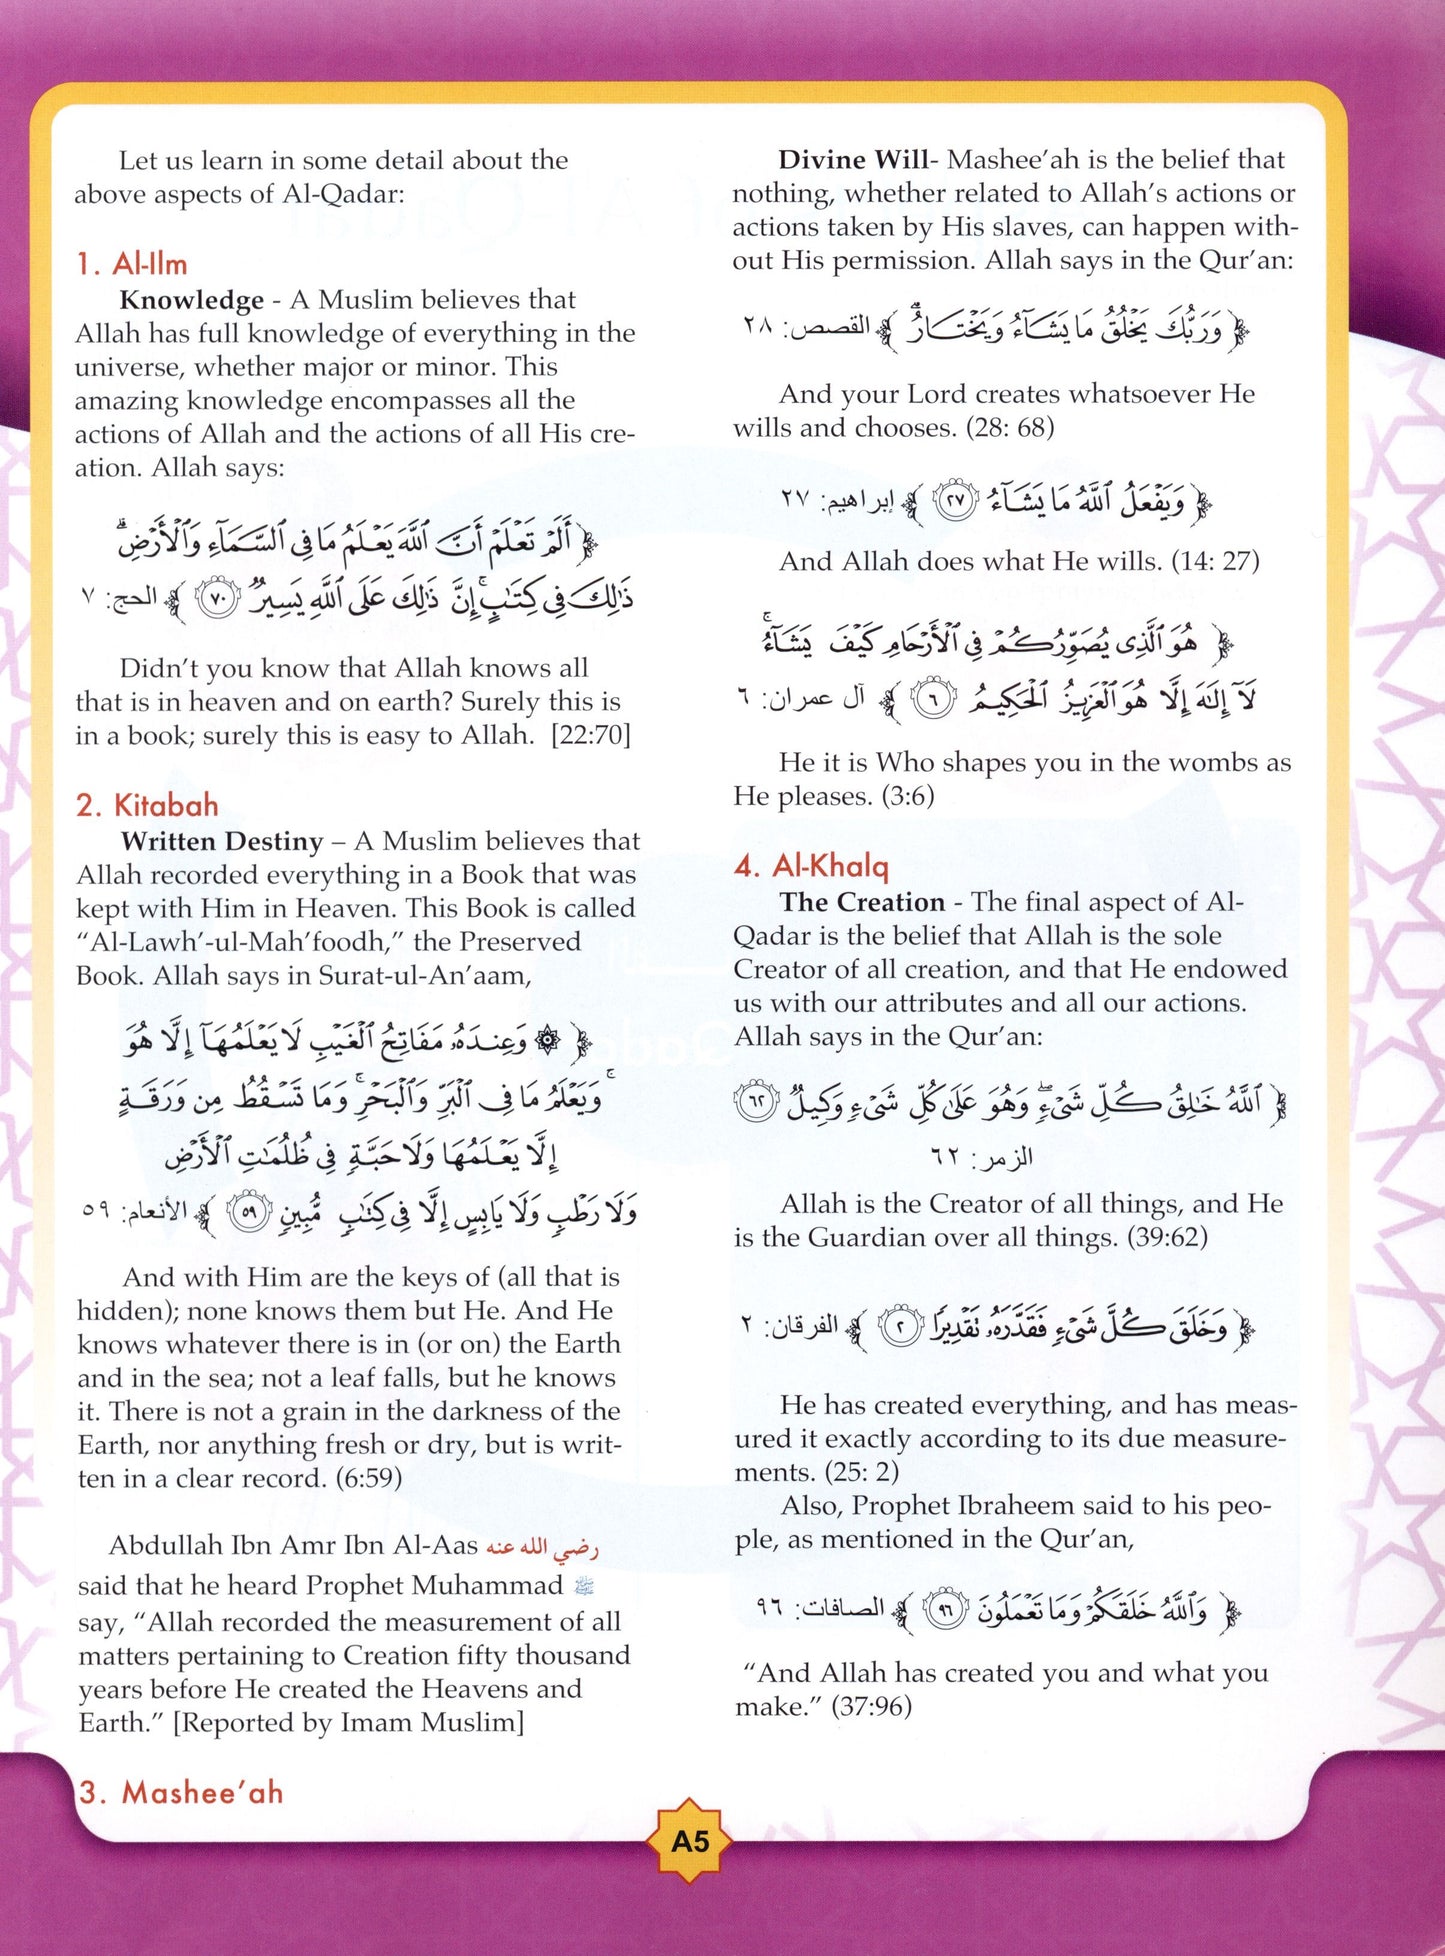 Let us learn in some detail about the
above aspects of Al-Qadar:
1. Al-Ilm
Knowledge - A Muslim believes that
Allah has full knowledge of everything in the
universe, whether major or minor. This
amazing knowledge encompasses all the
actions of Allah and the actions of all His cre-
ation. Allah says:
﴿ أَلَمْ تَعْلَمْ أَنَّ ٱللَّهَ يَعْلَمُ مَا فِى ٱلسَّمَآءِ وَٱلْأَرْضِ ۗ
ذَٰلِكَ فِى كِتَٰبٍ ۚ إِنَّ ذَٰلِكَ عَلَى ٱللَّهِ يَسِيرٌ ٧٠ ﴾ الحج: ٧
Didn't you know that Allah knows all
that is in heaven and on earth? Surely this is
in a book; surely this is easy to Allah. [22:70]
2. Kitabah
Written Destiny – A Muslim believes that
Allah recorded everything in a Book that was
kept with Him in Heaven. This Book is called
“Al-Lawh’-ul-Mah’foodh,” the Preserved
Book. Allah says in Surat-ul-An’aam,
﴿ ۞ وَعِندَهُۥ مَفَاتِحُ ٱلْغَيْبِ لَا يَعْلَمُهَآ إِلَّا هُوَ
ۚ وَيَعْلَمُ مَا فِى ٱلْبَرِّ وَٱلْبَحْرِ ۚ وَمَا تَسْقُطُ مِن وَرَقَةٍ
إِلَّا يَعْلَمُهَا وَلَا حَبَّةٍ فِى ظُلُمَٰتِ ٱلْأَرْضِ
وَلَا رَطْبٍ وَلَا يَابِسٍ إِلَّا فِى كِتَٰبٍ مُّبِينٍ ٥٩ ﴾ الأنعام: ٥٩
And with Him are the keys of (all that is
hidden); none knows them but He. And He
knows whatever there is in (or on) the Earth
and in the sea; not a leaf falls, but he knows
it. There is not a grain in the darkness of the
Earth, nor anything fresh or dry, but is writ-
ten in a clear record. (6:59)
Abdullah Ibn Amr Ibn Al-Aas رضي الله عنه
said that he heard Prophet Muhammad ﷺ
say, “Allah recorded the measurement of all
matters pertaining to Creation fifty thousand
years before He created the Heavens and
Earth.” [Reported by Imam Muslim]
3. Mashee’ah
Divine Will- Mashee’ah is the belief that
nothing, whether related to Allah’s actions or
actions taken by His slaves, can happen with-
out His permission. Allah says in the Qur’an:
﴿ وَرَبُّكَ يَخْلُقُ مَا يَشَآءُ وَيَخْتَارُ ۗ ﴾ القصص: ٢٨
And your Lord creates whatsoever He
wills and chooses. (28: 68)
﴿ وَيَفْعَلُ ٱللَّهُ مَا يَشَآءُ ٢٧ ﴾ إبراهيم: ٢٧
And Allah does what He wills. (14: 27)
﴿ هُوَ ٱلَّذِى يُصَوِّرُكُمْ فِى ٱلْأَرْحَامِ كَيْفَ يَشَآءُ ۚ
لَآ إِلَٰهَ إِلَّا هُوَ ٱلْعَزِيزُ ٱلْحَكِيمُ ٦ ﴾ آل عمران: ٦
He it is Who shapes you in the wombs as
He pleases. (3:6)
4. Al-Khalq
The Creation - The final aspect of Al-
Qadar is the belief that Allah is the sole
Creator of all creation, and that He endowed
us with our attributes and all our actions.
Allah says in the Qur’an:
﴿ ٱللَّهُ خَٰلِقُ كُلِّ شَىْءٍ ۖ وَهُوَ عَلَىٰ كُلِّ شَىْءٍ وَكِيلٌ ٦٢
الزمر: ٦٢
Allah is the Creator of all things, and He
is the Guardian over all things. (39:62)
﴿ وَخَلَقَ كُلَّ شَىْءٍ فَقَدَّرَهُۥ تَقْدِيرًا ٢ ﴾ الفرقان: ٢
He has created everything, and has meas-
ured it exactly according to its due measure-
ments. (25: 2)
Also, Prophet Ibraheem said to his peo-
ple, as mentioned in the Qur’an,
﴿ وَٱللَّهُ خَلَقَكُمْ وَمَا تَعْمَلُونَ ٩٦ ﴾ الصافات: ٩٦
“And Allah has created you and what you
make.” (37:96)
A5